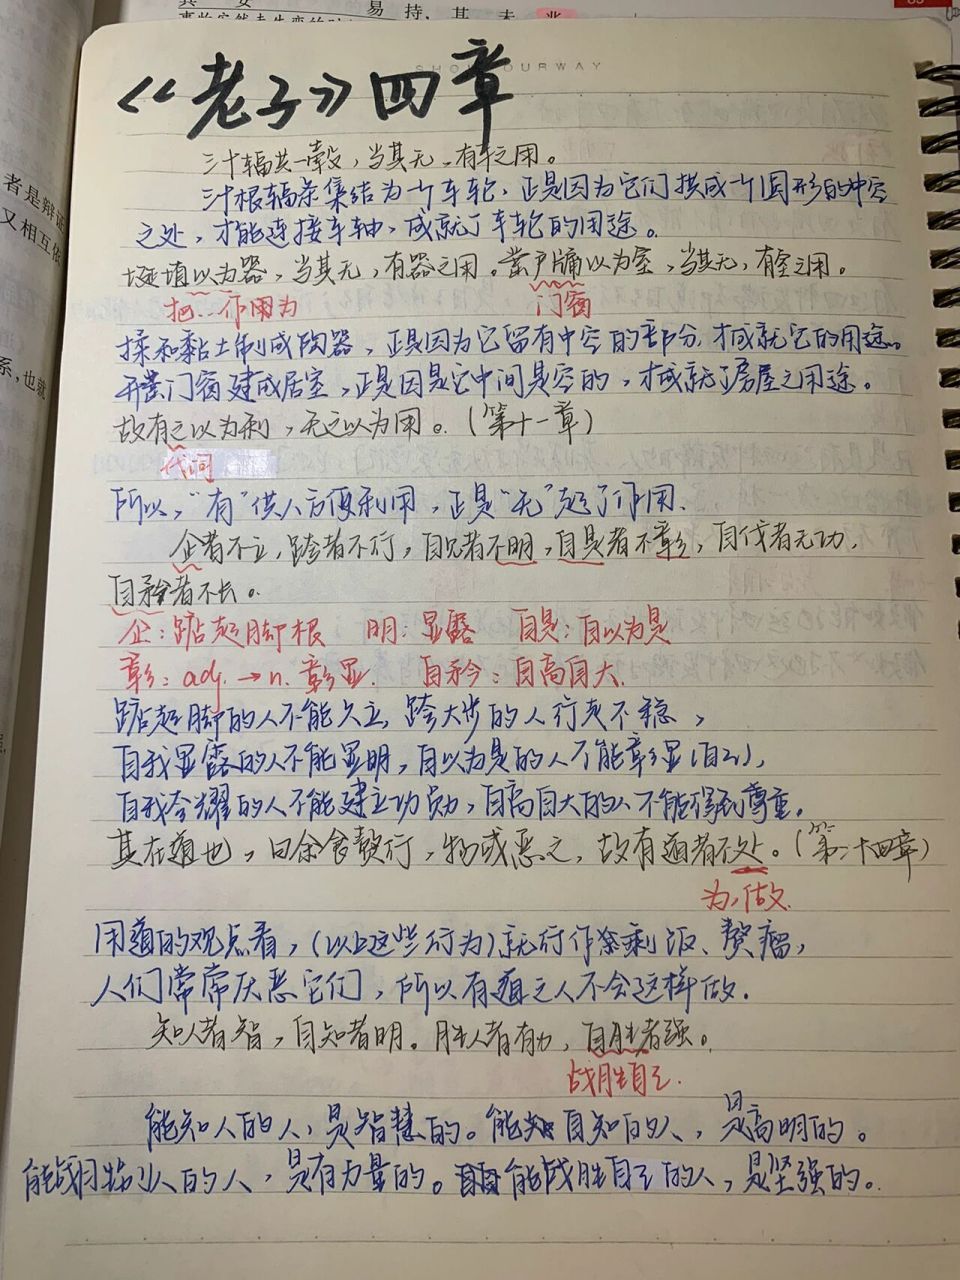 《老子》四章
三十辐共一毂，当其无，有车之用。
三十根辐条集结为一个车轮，正是因为它们拱成一个圆形的中空
之处，才能连接车轴，成就了车轮的用途。
埏埴以为器，当其无，有器之用。凿户牖以为室，当其无，有室之用。
把…作用为 门窗
揉和黏土制成陶器，正是因为它留有中空的部分，才成就它的用途。
开凿门窗建成居室，正是因是它中间是空的，才成就了房屋之用途。
故有之以为利，无之以为用。（第十一章）
代词
所以，“有”供人方便利用，正是“无”起了作用.
企者不立，跨者不行，自见者不明，自是者不彰，自伐者无功，
自矜者不长。
企：踮起脚根 明：显露 自是：自以为是
彰：adj. → n. 彰显. 自矜：自高自大.
踮起脚的人不能久立，跨大步的人行走不稳，
自我显露的人不能显明，自以为是的人不能彰显（自己），
自我夸耀的人不能建立功勋，自高自大的人不能得到尊重。
其在道也，曰余食赘行，物或恶之，故有道者不处。（第二十四章）
为，做.
用道的观点看，（以上这些行为）就行作余剩饭、赘瘤，
人们常常厌恶它们，所以有道之人不会这样做.
知人者智，自知者明。胜人者有力，自胜者强。
战胜自己.
能知人的人，是智慧的。能 自知的人，是高明的。
能战胜 人的人，是有力量的。能战胜自己的人，是坚强的。